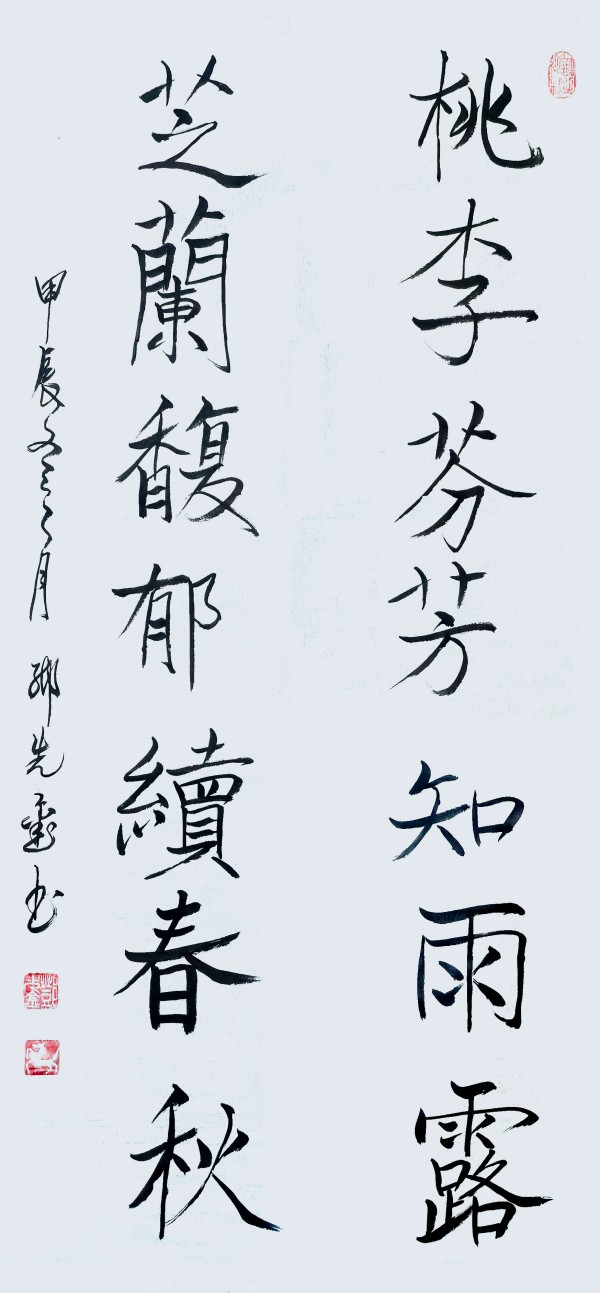 桃李芬芳知雨露
芝蘭馥郁續春秋
甲辰 月 先 书